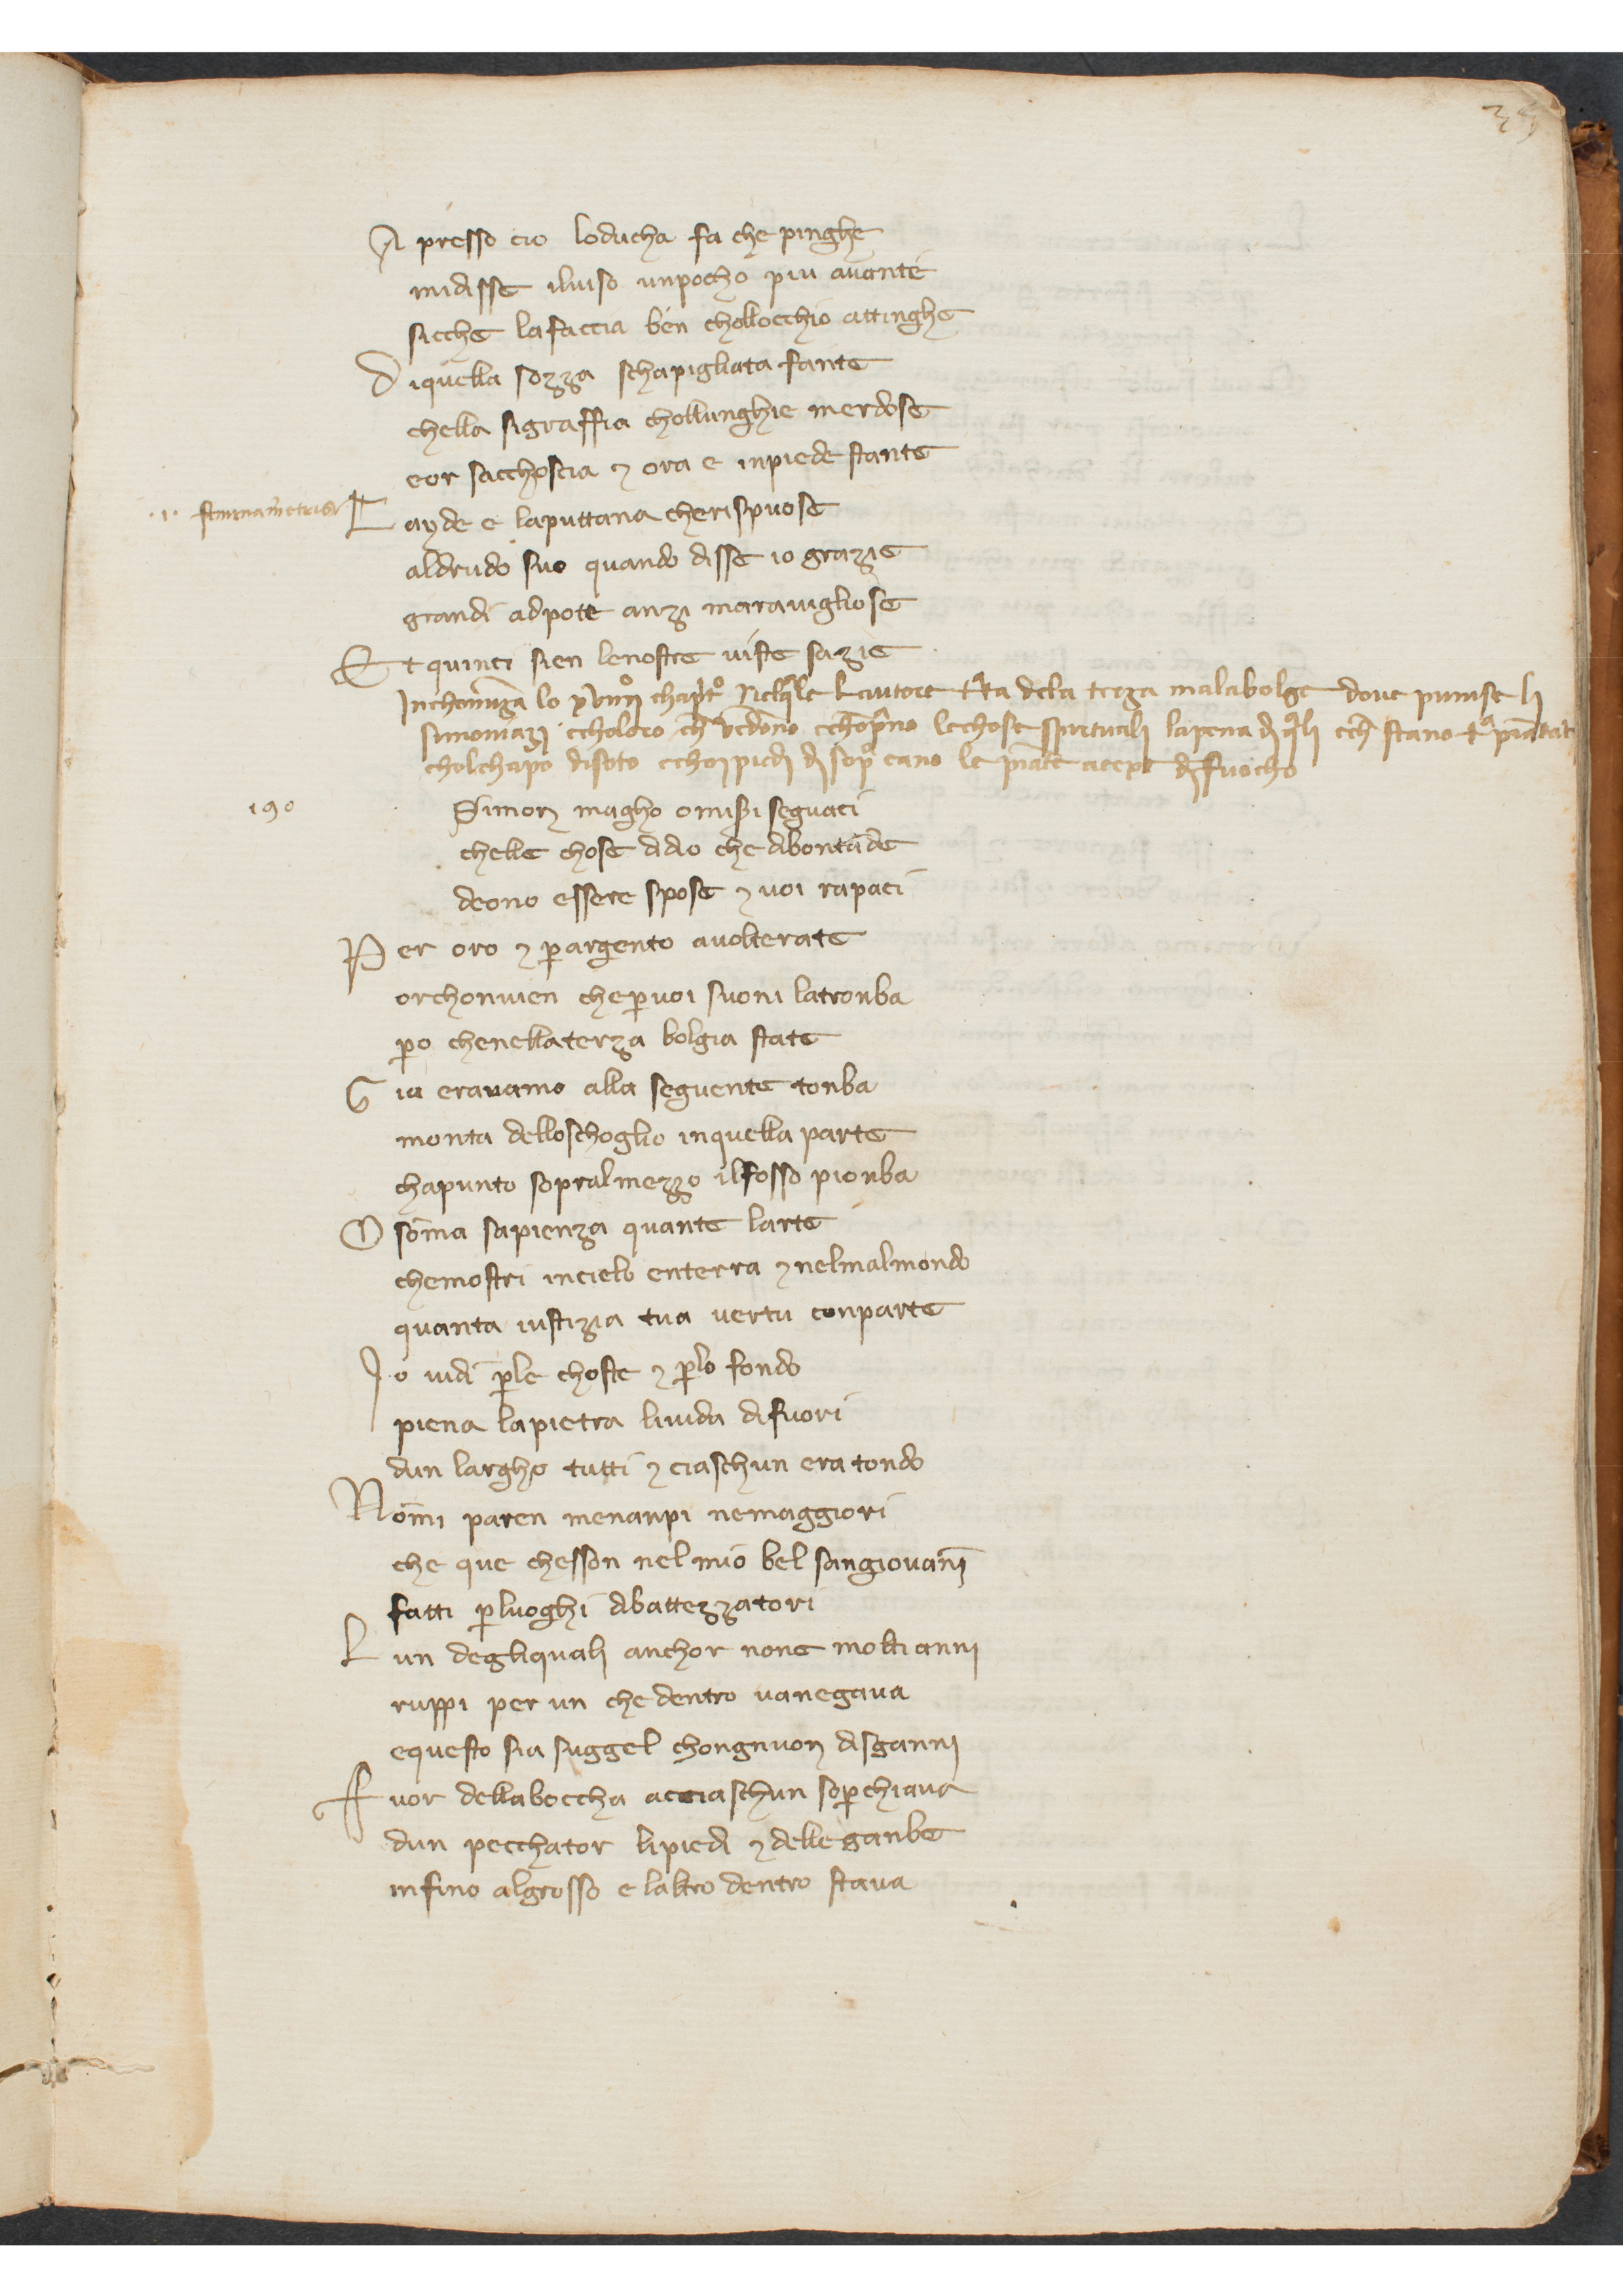 39
A presso cio loducha fa che pinghe
midisse iluiso unpocho piu auante
sicche lafaccia ben chollocchio attinghe
D iquella sozza schapigliata fante
chella sigraffia chollunghie merdose
eor sacchoscia ⁊ ora e inpiede stante
·1· L ayde e laputtana cherispuose
aldrudo suo quando disse io grazie
grandi adpote anzi marauigliose
E t quinci sien lenostre uiste sazie
Inchomīza lo chapito nelqle lautore trata dela terza malabolge doue punise li
simoniazi ccholoro che vēdono lechose spirtuali lapena di qli ech stano
cholchapo disoto cchoi piedi di sopra eano le piāte acexe di fuocho
190 Simon magho o misri seguaci
chelle chose didio che dibontade
deono essere spose ⁊ uoi rapaci
P er oro ⁊ p argento auolterate
orchonuien chepuoi suoni latronba
po chenellaterza bolgia state
G ia erauamo alla seguente tonba
monta delloschoglio inquella parte
chapunto sopralmezzo ilfosso pionba
O sōma sapienza quante larte
chemostri incielo enterra ⁊ nelmalmondo
quanta iustizia tua uertu conparte
J o uidi ple choste ⁊ plo fondo
piena lapietra liuida difuori
dun largho tutti ⁊ ciaschun era tondo
N ōmi paren menanpi nemaggiori
che que chesson nel mio bel sangiouāni
fatti pluoghi dibattezzatori
L un degliquali anchor none molti anni
ruppi per un che dentro uanegaua
equesto sia suggel chongnuon disganni
F uor dellaboccha acciaschun sopchiaua
dun pecchator lipiedi ⁊ delle ganbe
infino algrosso e laltro dentro staua